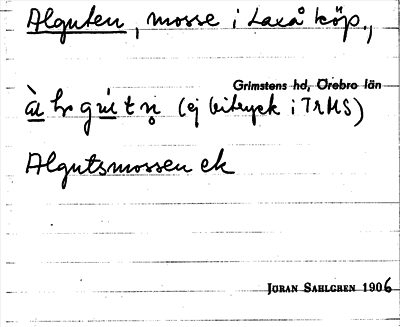 Alguten, mosse i Laxå köp.,
Grimstens hd, Örebro län
(ej bitryck i TrMS)
Algutsmossen ek
JÖRAN SAHLGREN 1906